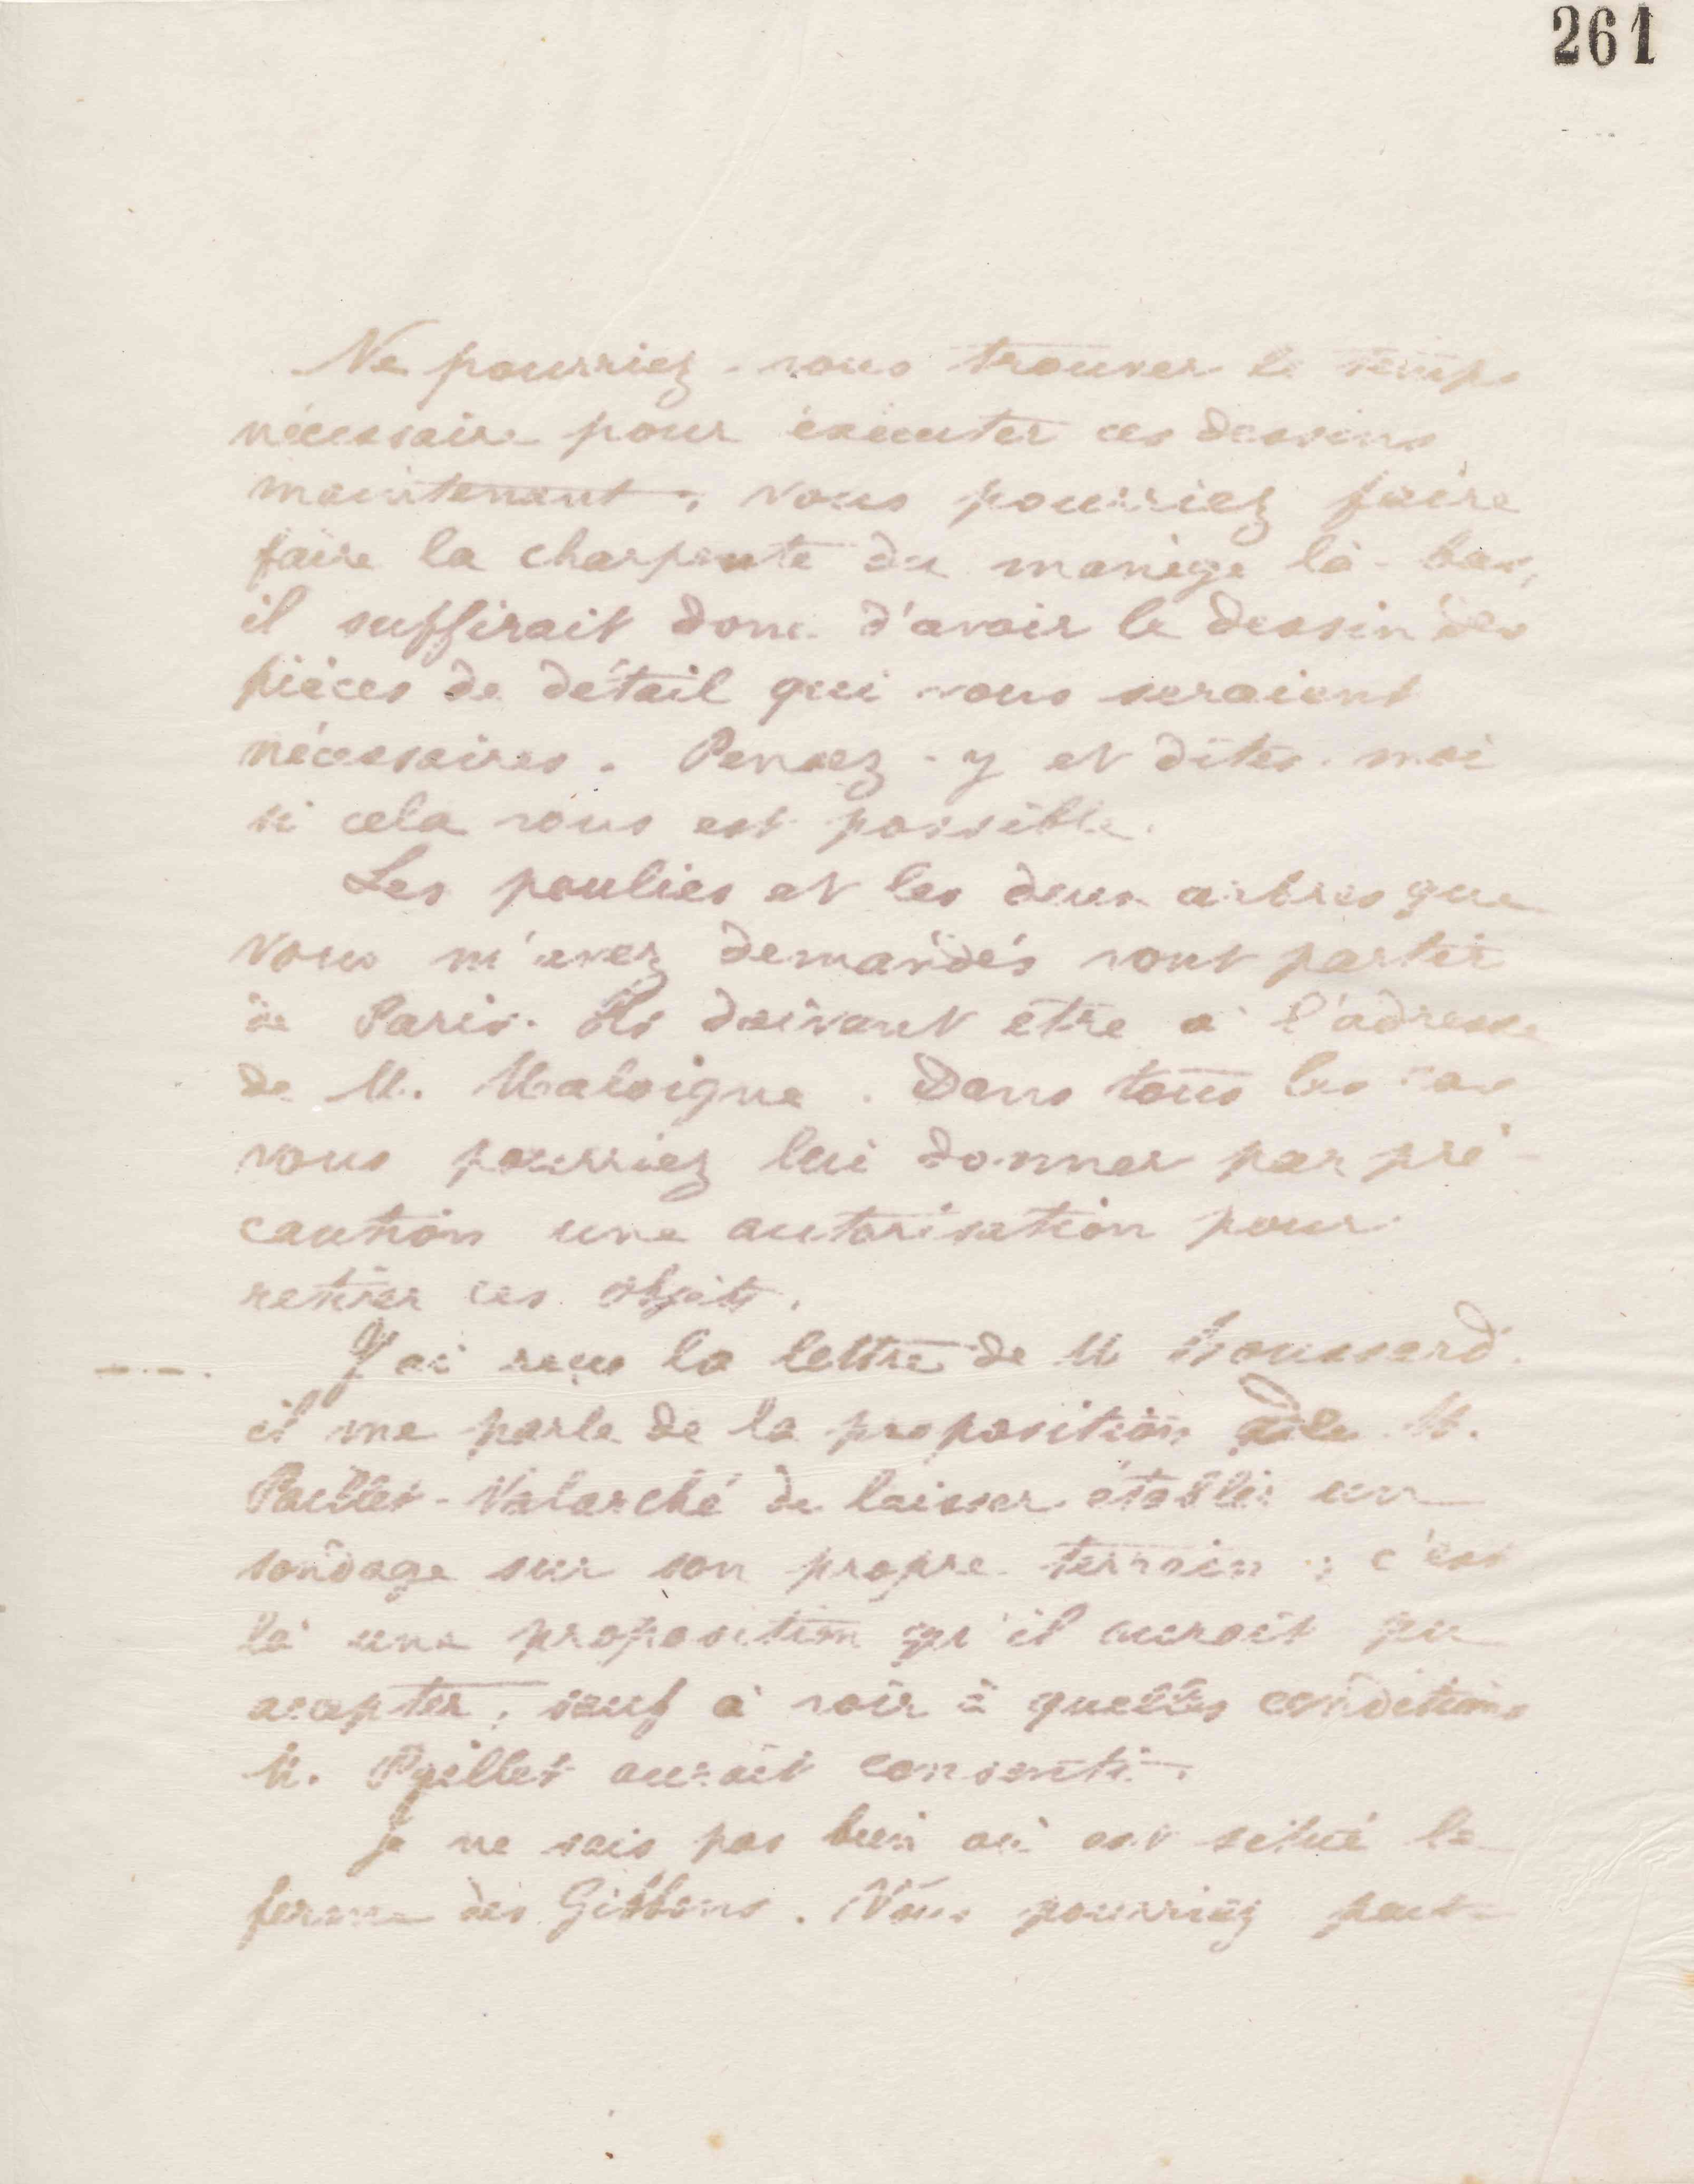 261
Ne pourriez-vous trouver le temps
nécessaire pour éxécuter ces dessins
maintenant, vous pourriez faire
faire la charpente du manège là-bas,
il suffirait donc d'avoir le dessin des
pièces de détail qui vous seraient
nécessaires. Pensez-y et dites-moi
si cela vous est possible.
Les poulies et les deux arbres que
vous m'avez demandés vont partir
de Paris. Ils doivent être à l'adresse
de M. Maloigne. Dans tous les cas
vous pourriez lui donner par pré-
caution une autorisation pour
retirer ces objets.
J'ai reçu la lettre de M
il me parle de la proposition de M.
Paillet-Valarché de laisser établir un
sondage sur son propre terrain ; c'est
là une proposition qu'il aurait pu
accepter, sauf à voir à quelles conditions
M. Paillet aurait consenti.
Je ne sais pas bien où est situé la
ferme des Gibbons. Vous pourriez peut-